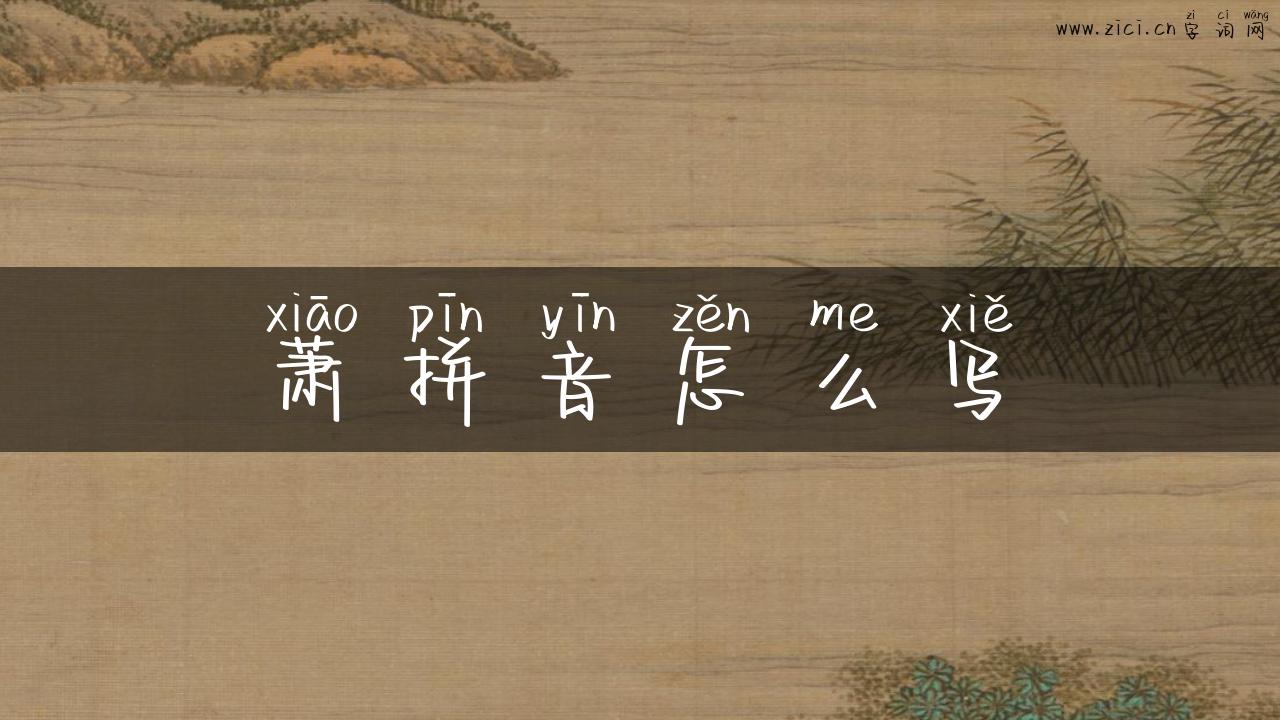 zì cí wǎng
www.zici.cn字词网
xiāo pīn yīn zěn me xiě
萧拼音怎么写